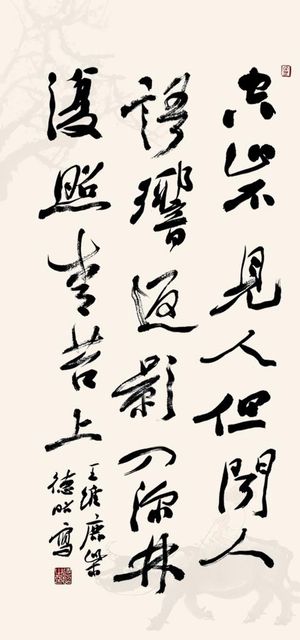 空山不見人但聞人
語響返影入深林
復照青苔上
王維鹿柴
德明寫